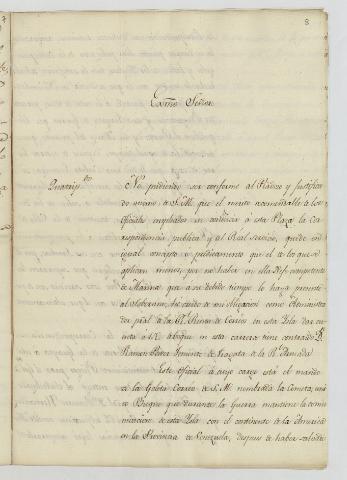 8
Exmo Señor
No pudiendo ser conforme al Piadoso y justifica
do animo de S.M. que el merito recomendable de los
Oficiales empleados en conducir a esta Plaza la Co
rrespondencia publica y del Real servicio, quede en
igual concepto y publicamente que el de los que se
aplican menos, por no haber en ella Gefe competente
de Marina que a su debido tiempo lo haga presente
al Soberano, he creido de mi obligacion como Administra
dor pral de la Rl Renta de Correos en esta Ysla dar cu
enta a V.E. del que en esta carrera tiene contraido Dn
Ramon Perez Teniente de Fragata de la Rl Armada
Este oficial a cuyo cargo está el mando
de la Goleta Correo de S.M. nombrada la Cometa, uni
co Buque que durante la Guerra mantiene la comu
nicacion de esta Ysla con el continente de la America
en la Provincia de Venezuela, despues de haber